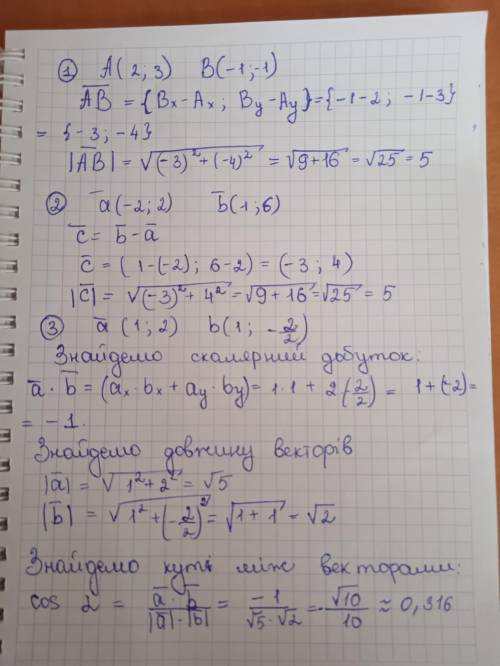 ① A(2;3) B(-1;-1)
AB = {Bx-Ax; By-Ay}={-1-2; -1-3}
= {-3; -4}
|AB| = √(-3)²+(-4)² = √9+16 = √25 = 5
② a(-2;2) b(1;6)
c = b - a
c = (1-(-2); 6-2) = (-3; 4)
|c| = √(-3)²+4² = √9+16 = √25 = 5
③ a (1;2) b(1; -2/2)
Знайдемо скалярний добуток:
a · b = (ax·bx + ay·by) = 1·1 + 2(-2/2) = 1+(-2) =
= -1.
Знайдемо довжину векторів
|a| = √1²+2² = √5
|b| = √1²+(-2/2)² = √1+1 = √2
Знайдемо кути між векторами:
cos α = a b / |a|·|b| = -1/√5·√2 = -√10/10 ≈ 0,316